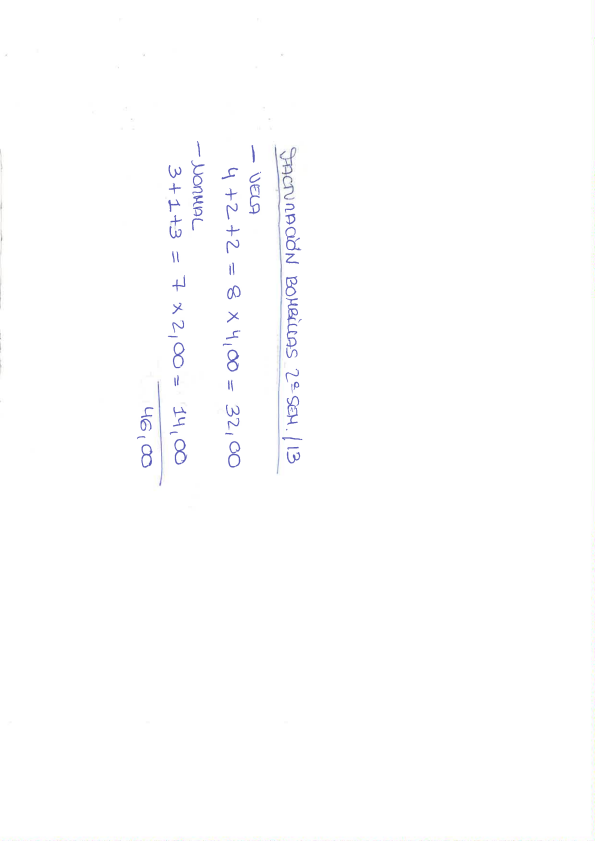 FACTURACIÓN BOMBILLAS 2º SEM./13
- VELA
4 + 2 + 2 = 8 x 4,00 = 32,00
- NORMAL
3 + 1 + 3 = 7 x 2,00 = 14,00
46,00